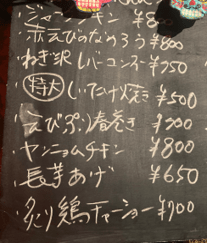 チキン ¥8
赤えびのなめろう ¥800
ねぎ沢 レバーコンフ ¥750
特大 しいたけ焼き ¥500
えびぷり春巻き ¥700
ヤンニョムチキン ¥800
長芋あげ ¥650
炙り鶏チャーシュー ¥700